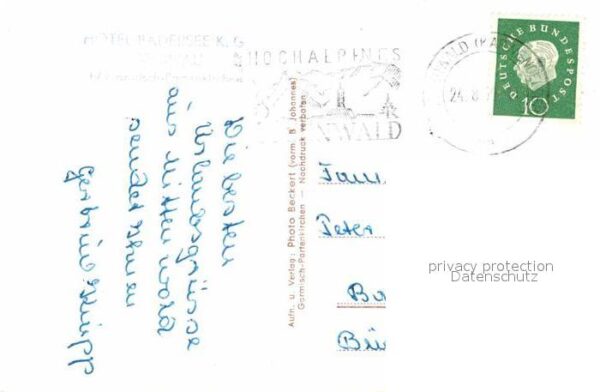 HOTEL BADERSEE K. G
HOCHALPINES
NWALD
WALD (KA
24.8.
DEUTSCHE BUNDESPOST
10
Die besten
Urlaubsgrüsse
aus Mittenwald
sendet Ihnen
Aufn. u. Verlag: Photo Beckert (vorm. B. Johannes)
Garmisch-Partenkirchen – Nachdruck verboten
Fam
Peter
Ba
privacy protection
Datenschutz